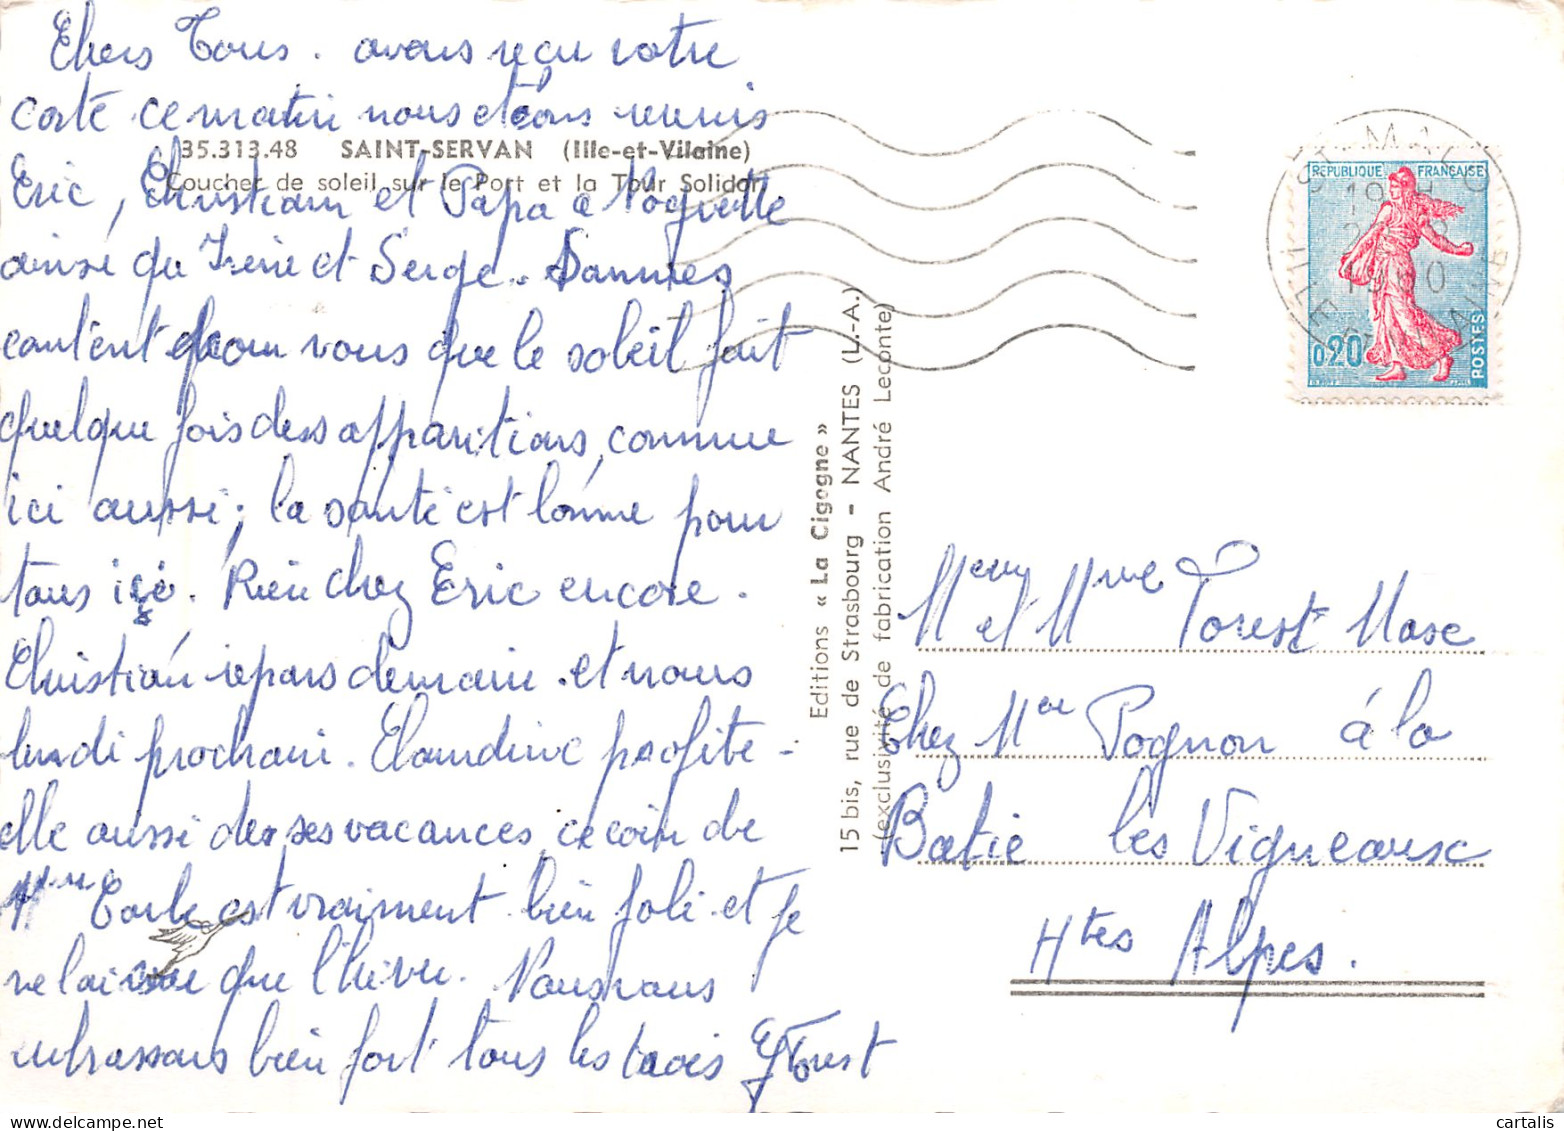 Chers Tous. avons reçu votre
carte ce matin nous étions réunis
35.313.48 SAINT-SERVAN (Ille-et-Vilaine)
Coucher de soleil sur le Port et la Tour Solidor
Eric, Christian et Papa à
ainsi que Irène et Serge. Sommes
content pour vous que le soleil fait
quelque fois des apparitions, comme
ici aussi; la santé est bonne pour
tous ici. Rien chez Eric encore.
Christian repars demain et nous
lundi prochain. Claudine profite-
elle aussi de ses vacances, ce coin de
est vraiment bien joli et je
ne l'ai vue que l'hiver. Nous vous
embrassons bien fort tous les trois Forest
Editions « La Cigogne »
15 bis, rue de Strasbourg - NANTES (L.-A.)
(exclusivité de fabrication André Leconte)
ST MALO
ILLE ET VILAINE
REPUBLIQUE FRANÇAISE
0,20
POSTES
Mr et Mme Forest
Chez Mr Pognon à la
Batie les Vigneaux
Htes Alpes.
cartalis